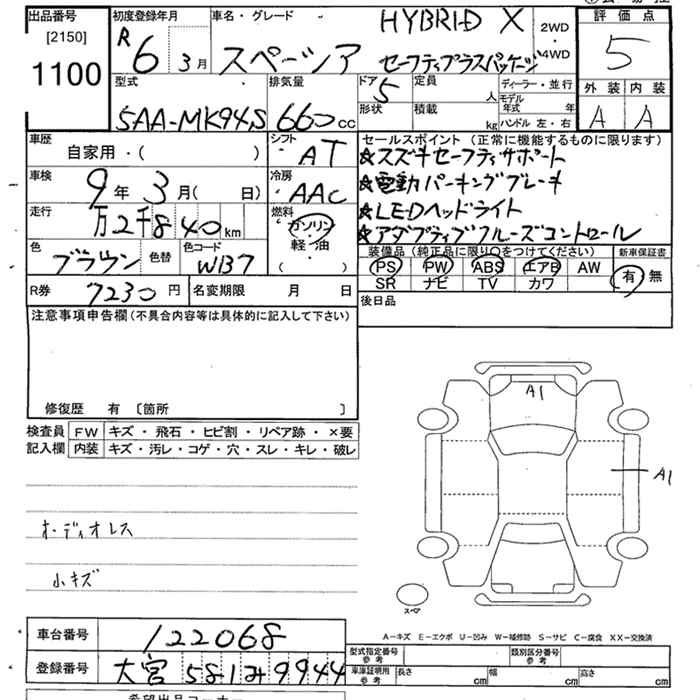 出品番号
[2150]
1100
初度登録年月
R6 3月
車名・グレード
スペーシア HYBRID X
セーフティプラスパッケージ
2WD
・
4WD
評価点
5
外装 内装
A A
型式
5AA-MK94S
排気量
660 CC
ドア
5
定員
人
形状
積載
kg
ディーラー・並行
モデル年式
年
ハンドル 左・右
車歴
自家用・( )
シフト
AT
車検
9年 3月( 日)
冷房
AAC
走行
万2千840 km
燃料
ガソリン
・
軽・油
( )
色
ブラウン
色替
色コード
WB7
R券
7230円
名変期限 月 日
セールスポイント (正常に機能するものに限ります)
★スズキセーフティサポート
★電動パーキングブレーキ
★LEDヘッドライト
★アダプティブクルーズコントロール
装備品 (純正品に限り○をつけてください)
PS PW ABS エアB AW
SR ナビ TV カワ
新車保証書
有 無
後日品
注意事項申告欄 (不具合内容等は具体的に記入して下さい)
修復歴 有 〔箇所 〕
検査員記入欄
FW キズ・飛石・ヒビ割・リペア跡・×要
内装 キズ・汚レ・コゲ・穴・スレ・キレ・破レ
オーディオレス
小キズ
A1
A1
スペア
A-キズ E-エクボ U-凹み W-補修跡 S-サビ C-腐食 XX-交換済
車台番号
122068
登録番号
大宮 581 み 9944
型式指定番号
参考
類別区分番号
参考
車庫証明用
参考
長さ cm 幅 cm 高さ cm